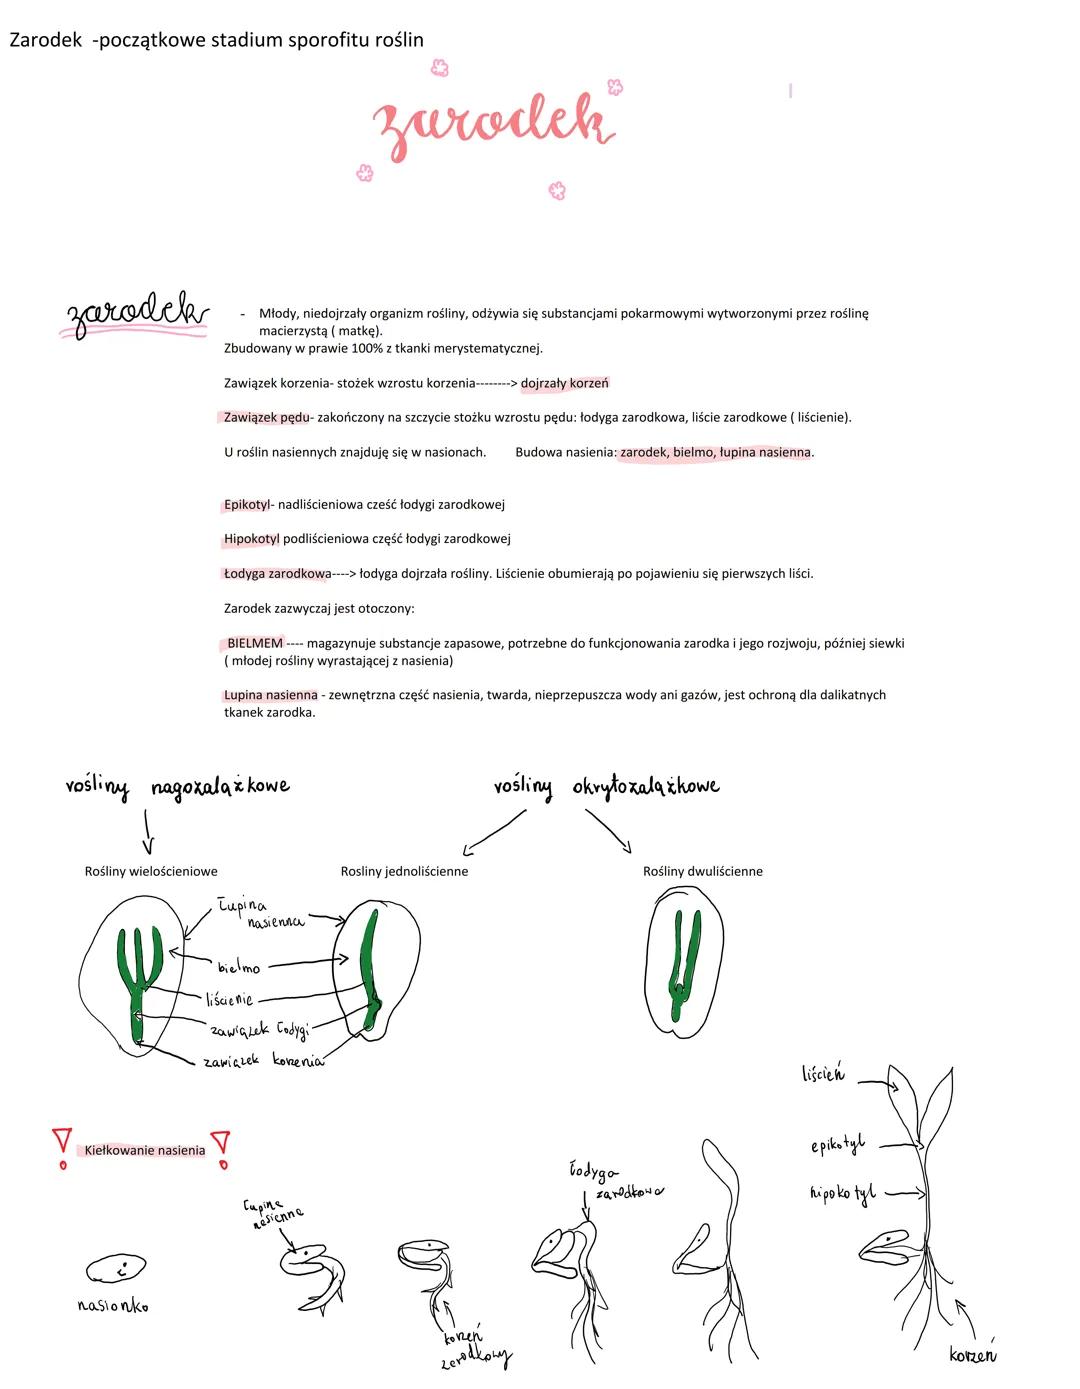 Zarodek -początkowe stadium sporofitu roślin
zarodek
zarodek
- Młody, niedojrzały organizm rośliny, odżywia się substancjami pokarmowymi wytworzonymi przez roślinę
macierzystą ( matkę).
Zbudowany w prawie 100% z tkanki merystematycznej.
Zawiązek korzenia- stożek wzrostu korzenia--------> dojrzały korzeń
Zawiązek pędu- zakończony na szczycie stożku wzrostu pędu: łodyga zarodkowa, liście zarodkowe ( liścienie).
U roślin nasiennych znajduję się w nasionach. Budowa nasienia: zarodek, bielmo, łupina nasienna.
Epikotyl- nadliścieniowa cześć łodygi zarodkowej
Hipokotyl podliścieniowa część łodygi zarodkowej
Łodyga zarodkowa----> łodyga dojrzała rośliny. Liścienie obumierają po pojawieniu się pierwszych liści.
Zarodek zazwyczaj jest otoczony:
BIELMEM ---- magazynuje substancje zapasowe, potrzebne do funkcjonowania zarodka i jego rozjwoju, później siewki
( młodej rośliny wyrastającej z nasienia)
Lupina nasienna - zewnętrzna część nasienia, twarda, nieprzepuszcza wody ani gazów, jest ochroną dla dalikatnych
tkanek zarodka.
rośliny nagozalążkowe
rośliny okrytozalążkowe
Rośliny wielościeniowe
Rosliny jednoliścienne
Rośliny dwuliścienne
Łupina
nasienna
bielmo
liścienie
zawiązek łodygi
zawiązek korzenia
! Kiełkowanie nasienia !
nasionko
Łupina
nasienna
korzeń
zarodkowy
łodyga
zarodkowa
liścień
epikotyl
hipokotyl
korzeń